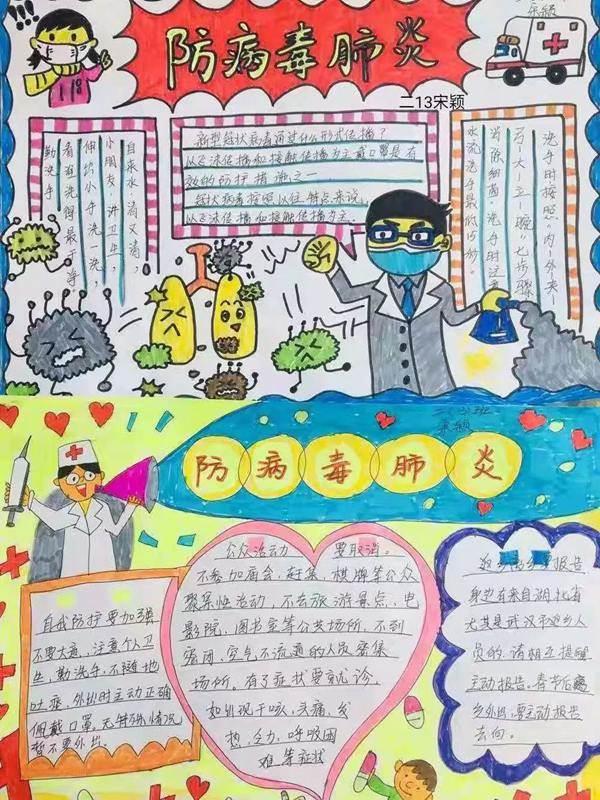 宋颖
防病毒肺炎
二13宋颖
自来水,清又清,
小朋友,讲卫生,
伸出小手洗一洗,
看谁洗得最干净
勤洗手
新型冠状病毒通过什么形式传播?
以飞沫传播和接触传播为主戴口罩是有
效的防护措施之一
冠状病毒按照以往特点来说,
以飞沫传播和接触传播为主.
洗手时按照"内-外-夹-
弓-大-立-腕"七步骤
洗手时注意
二(3)班
宋颖
防病毒肺炎
公众活动 要取消。
不参加庙会,赶集,棋牌等公众
聚集性活动,不去旅游景点,电
影院,图书室等公共场所,不到
密闭,空气不流通的人员密集
场所。有了症状要就诊,
如出现干咳,头痛,发
热,乏力,呼吸困
难等症状
自我防护要加强
不要大意,注意个人卫
生,勤洗手,不随地
吐痰,外出时主动正确
佩戴口罩。无特殊情况
暂不要外出。
返乡离乡要报告
身边有来自湖北省
尤其是武汉市返乡人
员的,请相互提醒
主动报告。春节后离
乡外出,要主动报告
去向。